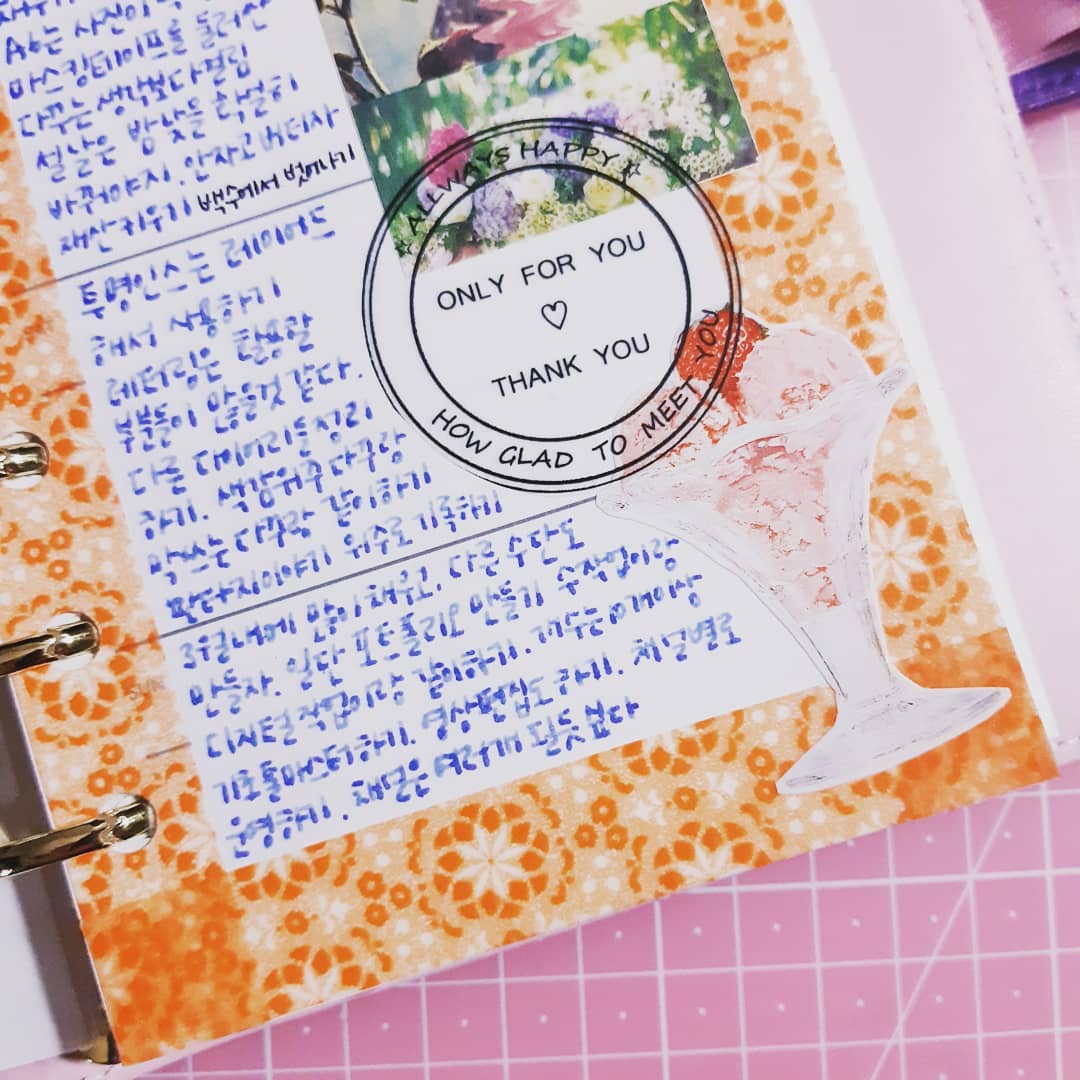 A6는 사진이
마스킹테이프를 둘러싼
다꾸는 생각보다 편림
설날은 밤낮을 확실히
바꿔야지. 안자고 버티자
재산 키우기 백수에서 벗어나기
투명인스는 레이어드
해서 사용하기
레터링은 활용할
부분들이 많을것 같다.
다른 다이어리들 정리
하기. 색감위주 다꾸랑
막쓰는 다꾸랑 같이하기
판다지이야기 위주로 기록하기
3월내에 많이 채우고, 다른 수단도
만들자. 일단 포트폴리오 만들기 수작업이랑
디지털작업이랑 같이하기. 개이상
기초툴마스터하기. 영상편집도 하기. 채널별로
운영하기. 채널은 여러개 될듯싶다
ALLWAYS HAPPY
ONLY FOR YOU
THANK YOU
HOW GLAD TO MEET YOU